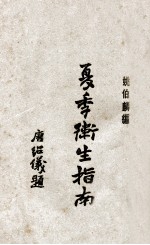 姚伯麟編
夏季衞生指南
唐紹儀題